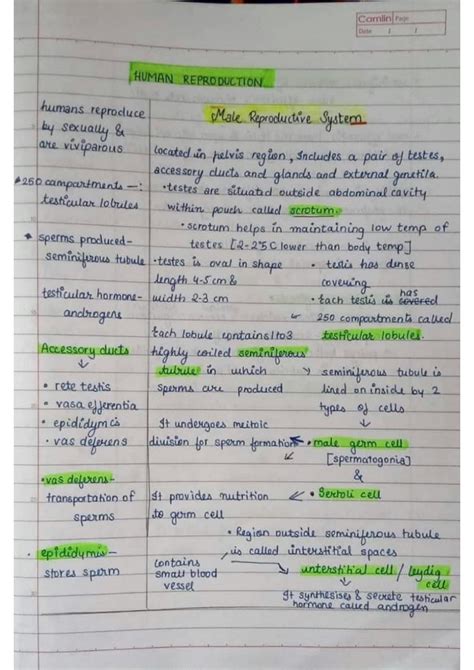 Camlin Page
Date / /
HUMAN REPRODUCTION
humans reproduce
by sexually &
are viviparous
*250 compartments —:
testicular lobules
* sperms produced-
seminiferous tubule
testicular hormone-
androgens
Accessory ducts
↓
• rete testis
• vasa efferentia
• epididymis
• vas deferens
• vas deferens-
transportation of
sperms
• epididymis —
stores sperm
Male Reproductive System
located in pelvis region, Includes a pair of testes,
accessory ducts and glands and external genetila.
• testes are situated outside abdominal cavity
within pouch called scrotum.
• scrotum helps in maintaining low temp of
testes [2-2.5°C lower than body temp]
• testes is oval in shape
length 4-5 cm &
width 2-3 cm
• testis has dense
covering
• Each testis is covered has
250 compartments called
testicular lobules.
Each lobule contains 1 to 3
highly coiled seminiferous
tubule in which
sperms are produced
→ seminiferous tubule is
lined on inside by 2
types of cells
↓
• male germ cell
[spermatogonia]
&
• Sertoli cell
It undergoes meitoic
division for sperm formation
It provides nutrition
to germ cell
• Region outside seminiferous tubule
is called interstitial spaces
contains
small blood
vessel
interstitial cell / leydig
cell
↓
It synthesises & secrete testicular
hormone called androgen